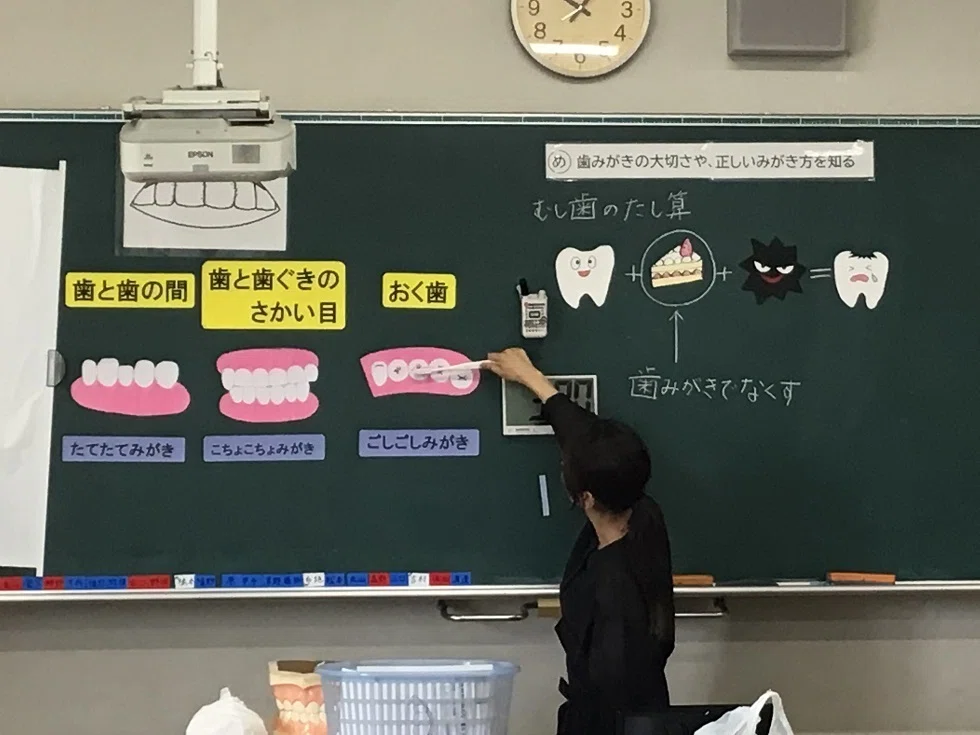 9
3
8
4
7
6
EPSON
め 歯みがきの大切さや、正しいみがき方を知る
むし歯のたし算
+ + =
歯みがきでなくす
歯と歯の間
歯と歯ぐきの
さかい目
おく歯
たてたてみがき
こちょこちょみがき
ごしごしみがき